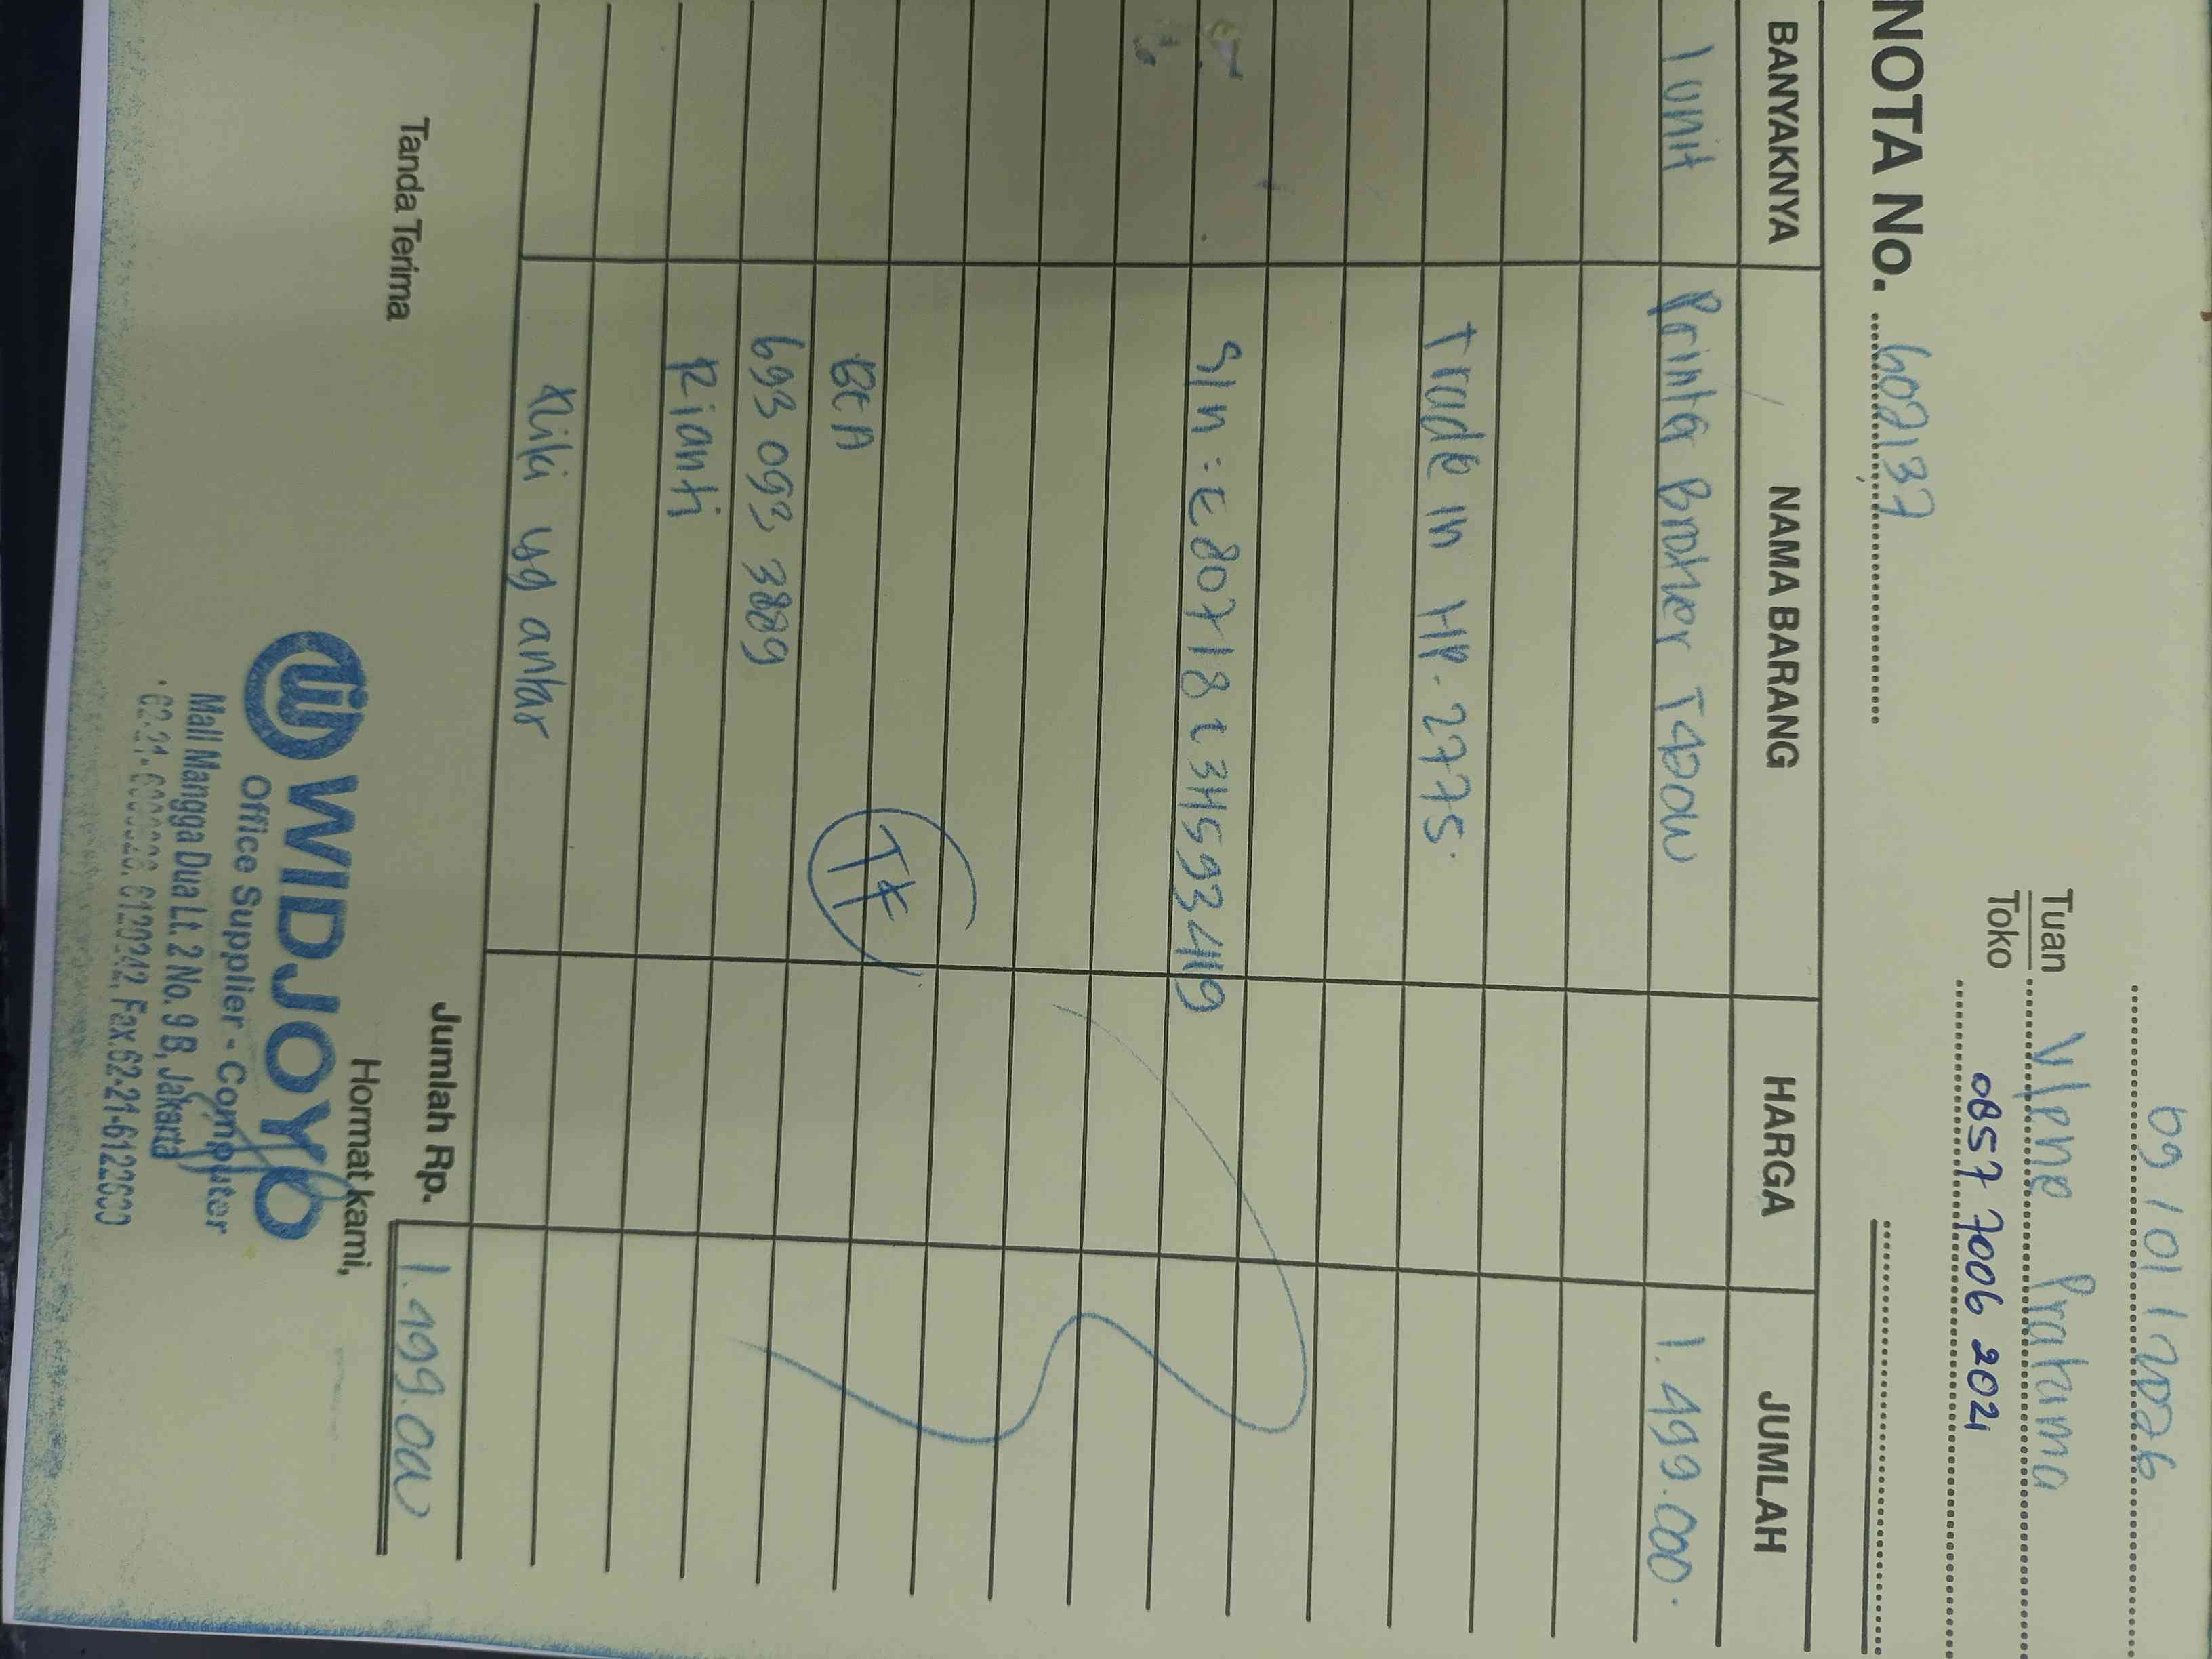 09/01/2026
Tuan Vlene Pratama
Toko 0857 7006 2021
NOTA No. 602137
BANYAKNYA NAMA BARANG HARGA JUMLAH
1 unit Printer Brother T420W 1.499.000.
trade in HP-2775.
S/n: E80718
TF
BCA
693 093 3889
Rianti
yg antar
Jumlah Rp. 1.499.000
Tanda Terima Hormat kami,
WIDJOYO
Office Supplier - Computer
Mall Mangga Dua Lt. 2 No. 9 B, Jakarta
6120242, Fax 62-21-